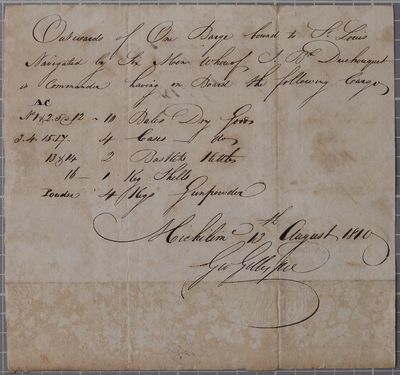 Outwards of One Barge bound to St. Louis
Navigated by Six Men whereof J. Bte Duchouquet
is Commander having on Board the following Cargo
AC
No 1 & 2. 5 @ 12 - 10 Bales Dry Goods
3.4. 15.17. 4 Cases - do
13 & 14 2 Baskets Kettles
16 - 1 Keg Shells
Powder 4 Kegs Gunpowder
Michilimc 13th August 1810
Geo Gillespie